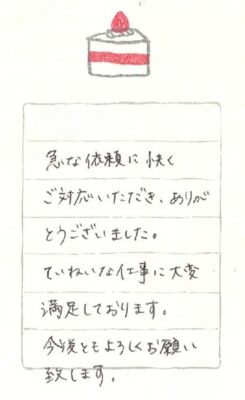 急な依頼に快く
ご対応いただき、ありが
とうございました。
ていねいな仕事に大変
満足しております。
今後ともよろしくお願い
致します。